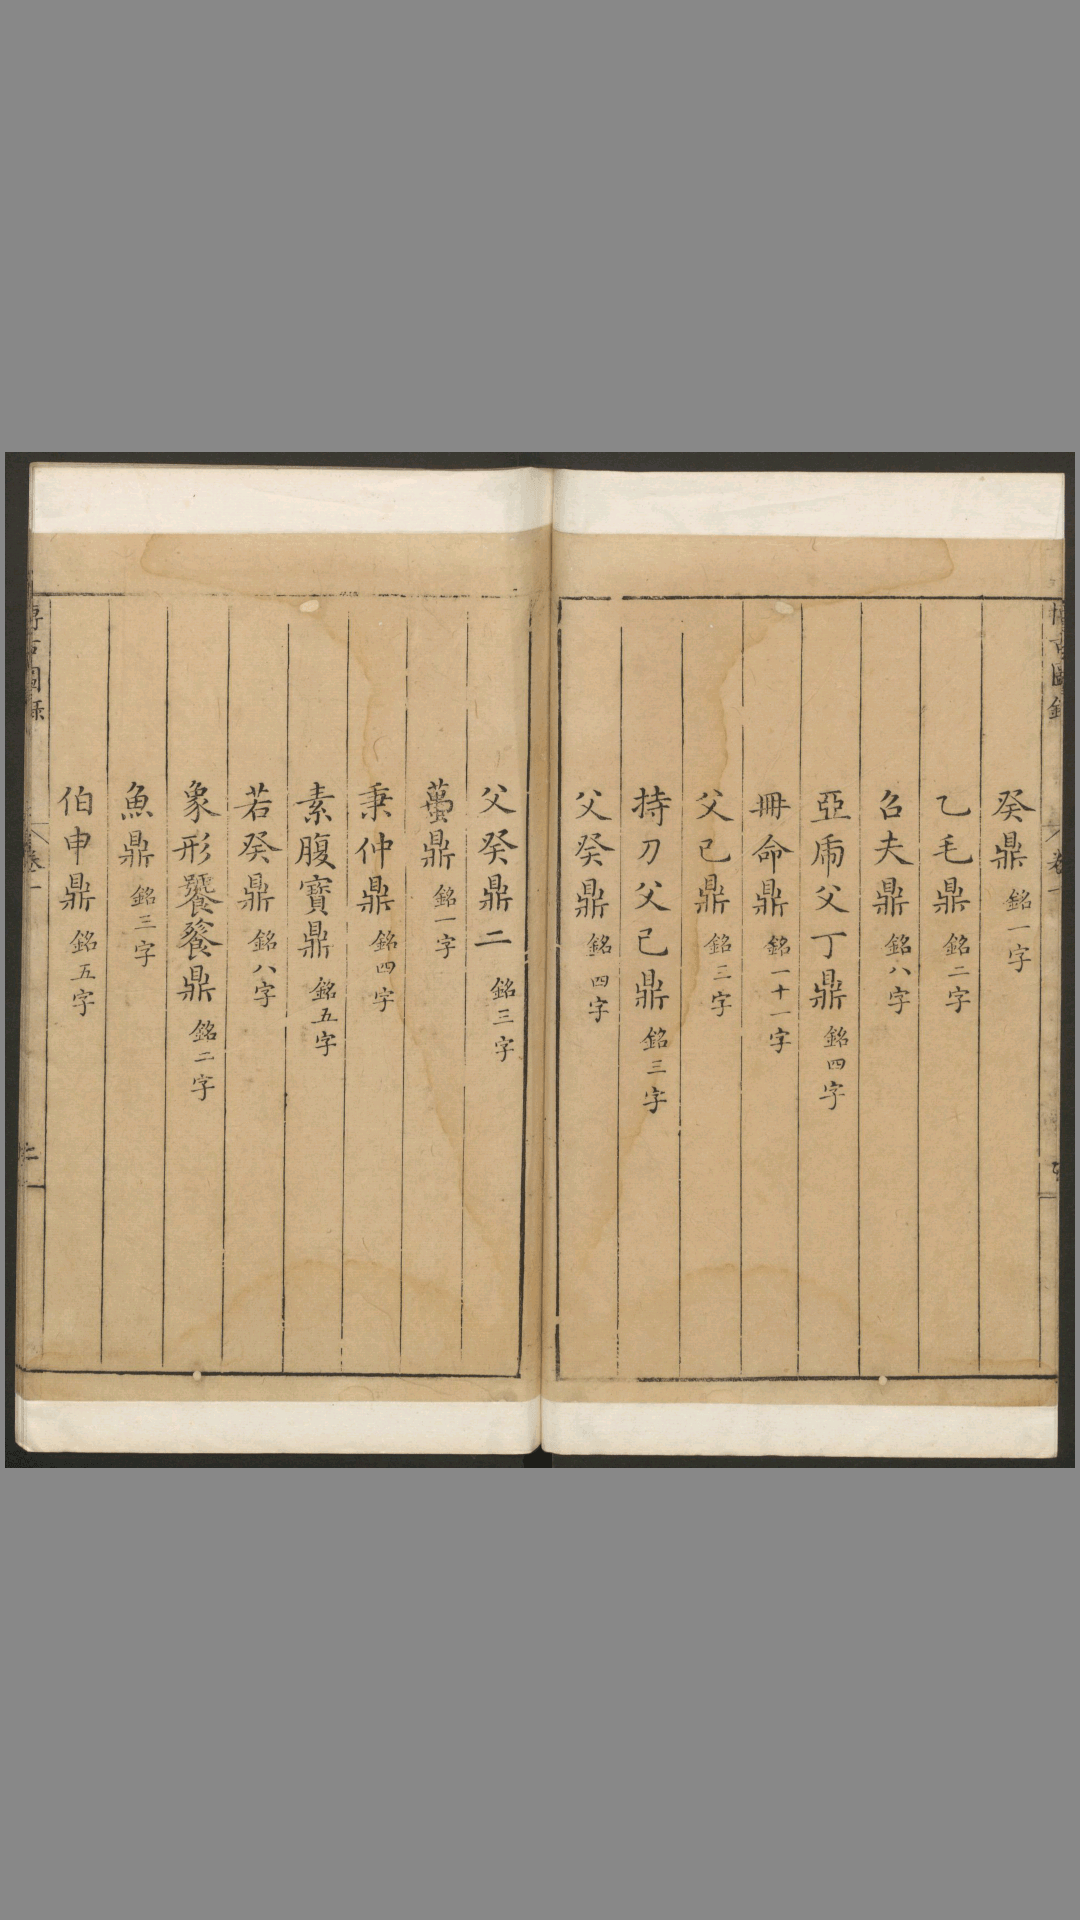 癸鼎 銘一字
乙毛鼎 銘二字
召夫鼎 銘八字
亞虎父丁鼎 銘四字
冊命鼎 銘一十一字
父己鼎 銘三字
持刀父己鼎 銘三字
父癸鼎 銘四字
父癸鼎二 銘三字
蠆鼎 銘一字
秉仲鼎 銘四字
素腹寶鼎 銘五字
若癸鼎 銘八字
象形饕餮鼎 銘二字
魚鼎 銘三字
伯申鼎 銘五字